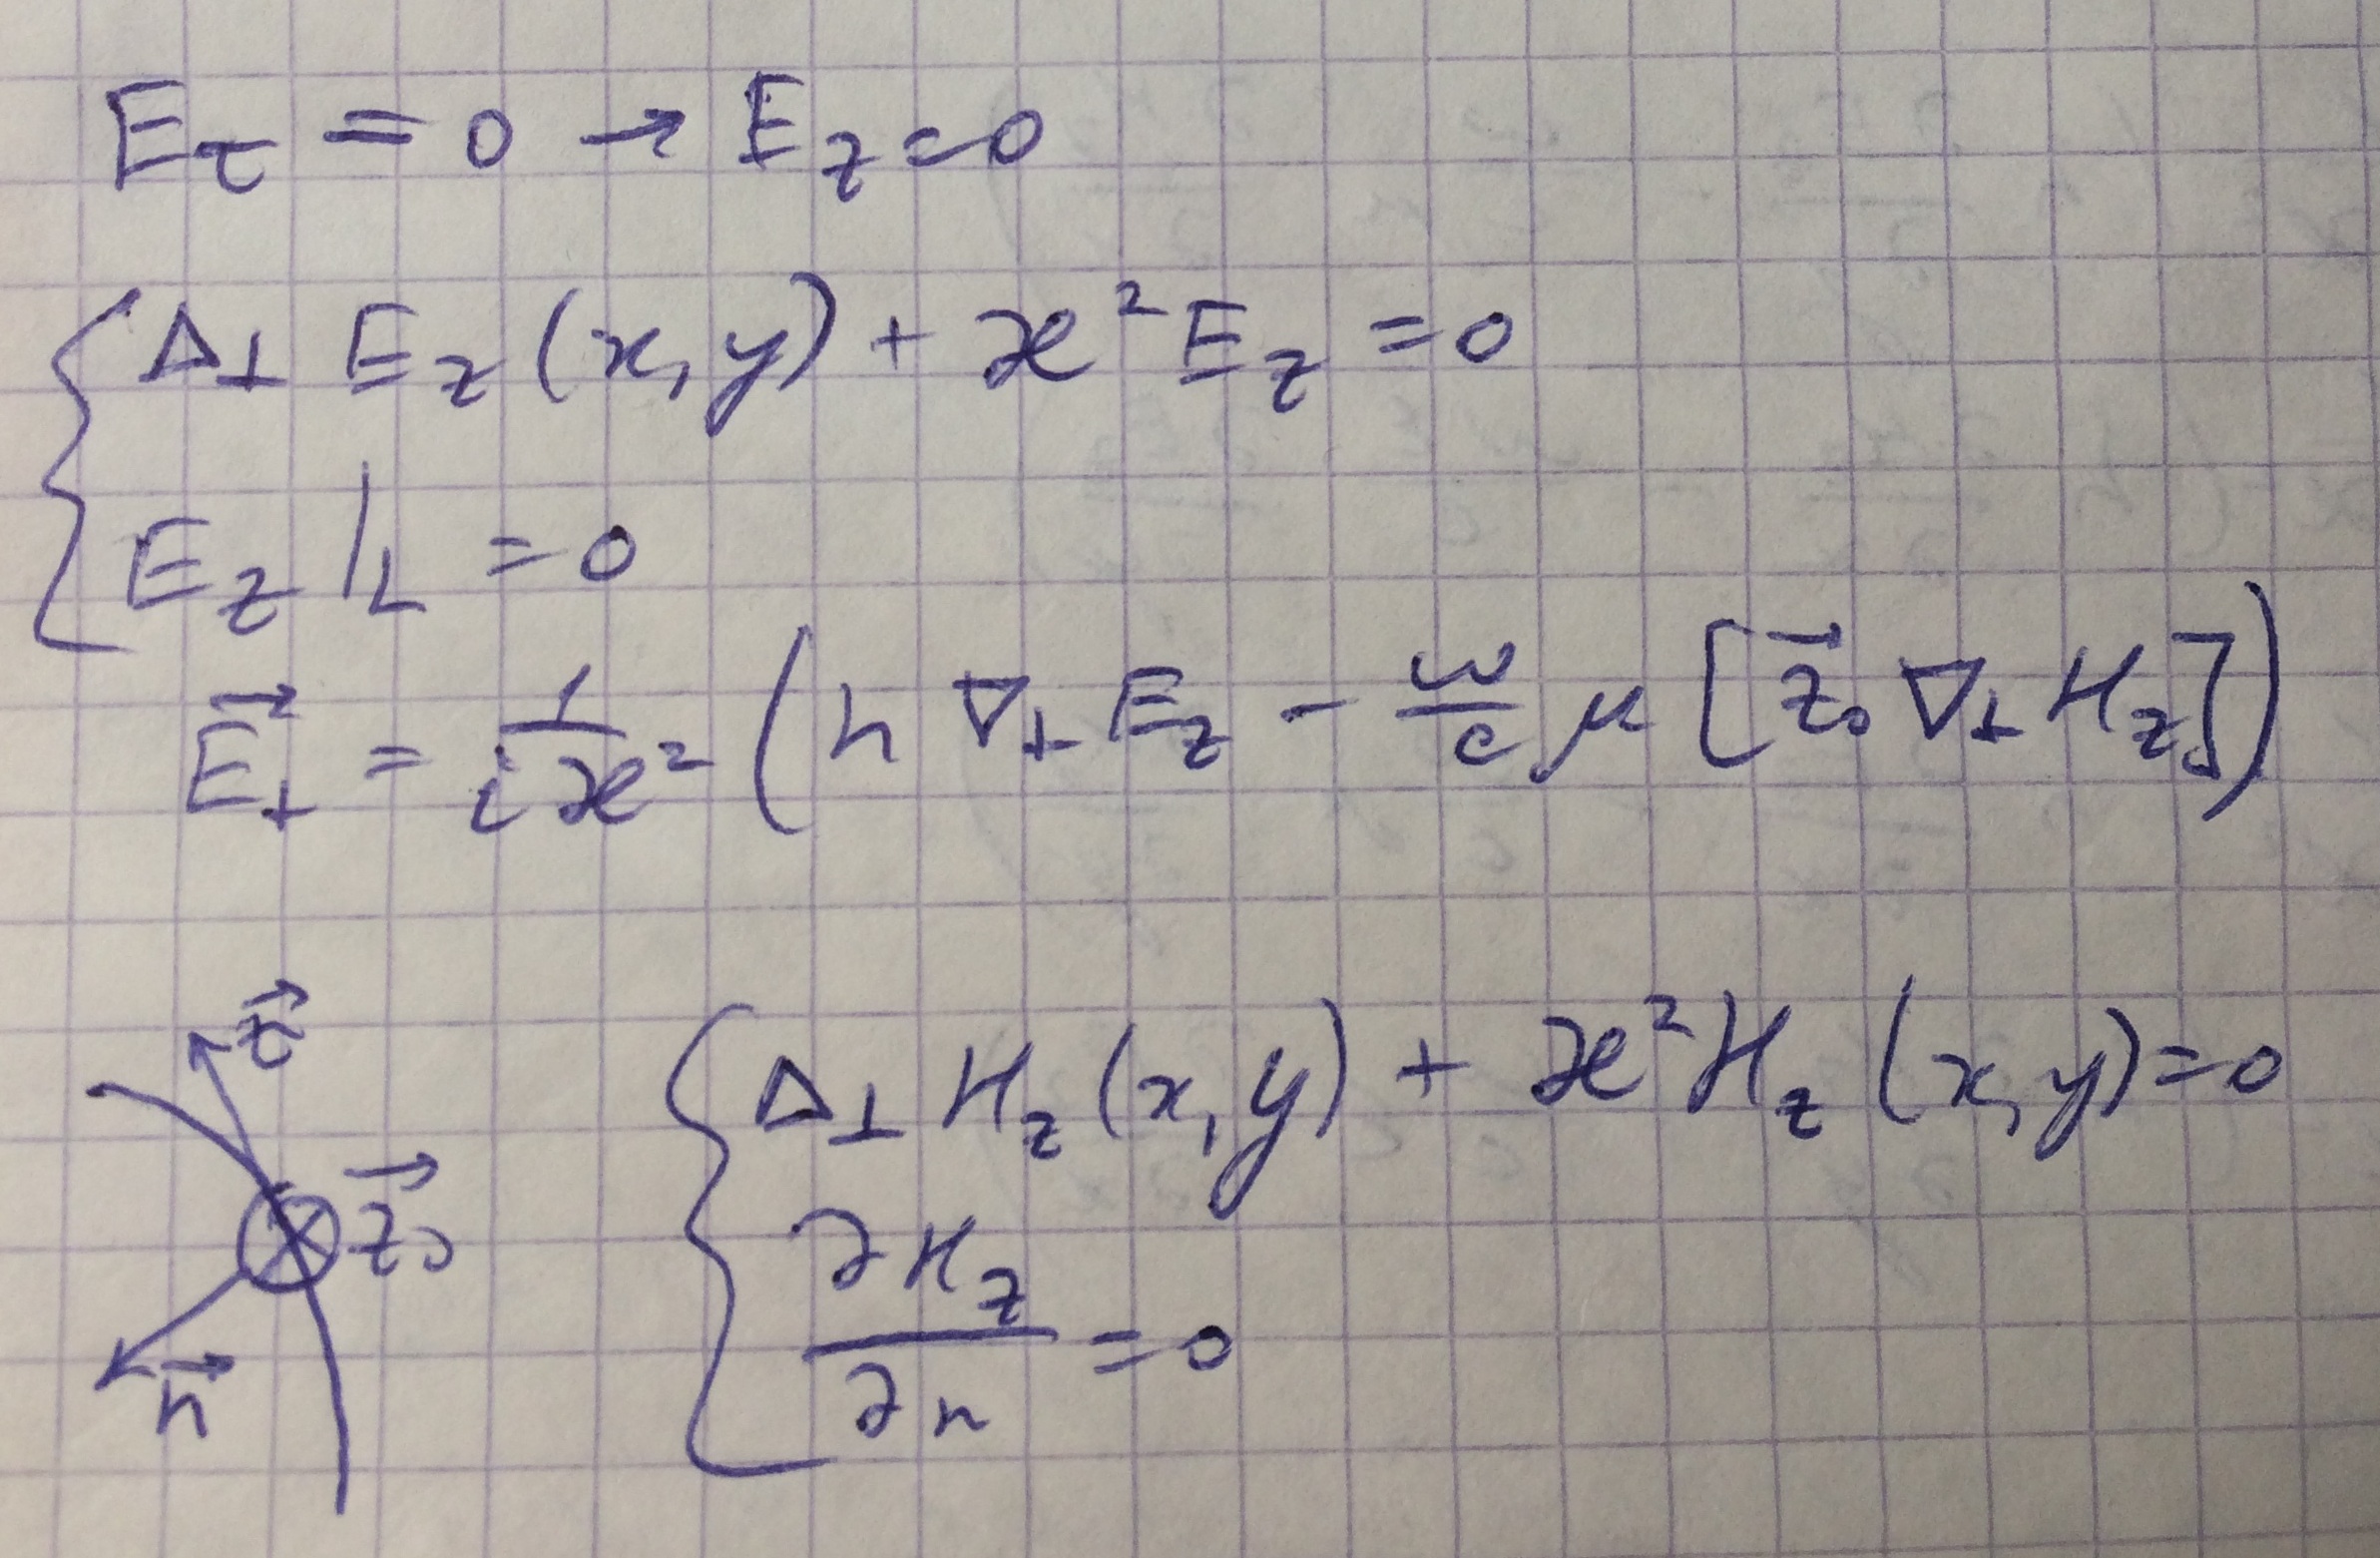 E_τ = 0 → E_z = 0
Δ_⊥ E_z (x, y) + æ² E_z = 0
E_z |_L = 0
\vec{E}_⊥ = \frac{1}{i æ²} ( h ∇_⊥ E_z - \frac{ω}{c} μ [ \vec{z}_0 ∇_⊥ H_z ] )
\vec{τ}
\vec{z}_0
\vec{n}
Δ_⊥ H_z (x, y) + æ² H_z (x, y) = 0
\frac{∂ H_z}{∂ n} = 0